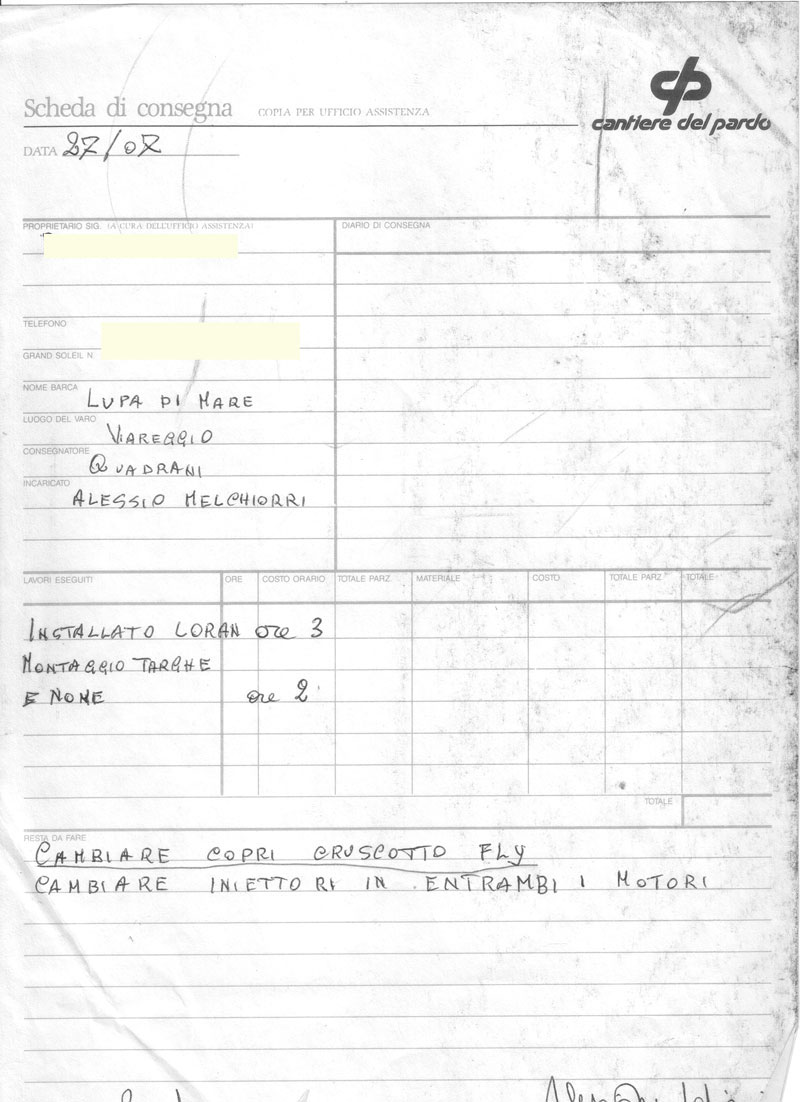 Scheda di consegna COPIA PER UFFICIO ASSISTENZA
cantiere del pardo
DATA 27/07
PROPRIETARIO SIG. (A CURA DELL'UFFICIO ASSISTENZA)
DIARIO DI CONSEGNA
TELEFONO
GRAND SOLEIL N.
NOME BARCA LUPA DI MARE
LUOGO DEL VARO VIAREGGIO
CONSEGNATORE QUADRANI
INCARICATO ALESSIO MELCHIORRI
LAVORI ESEGUITI ORE COSTO ORARIO TOTALE PARZ. MATERIALE COSTO TOTALE PARZ TOTALE
INSTALLATO LORAN ore 3
MONTAGGIO TARGHE
E NOME ore 2
TOTALE
RESTA DA FARE
CAMBIARE COPRI CRUSCOTTO FLY
CAMBIARE INIETTORI IN ENTRAMBI I MOTORI